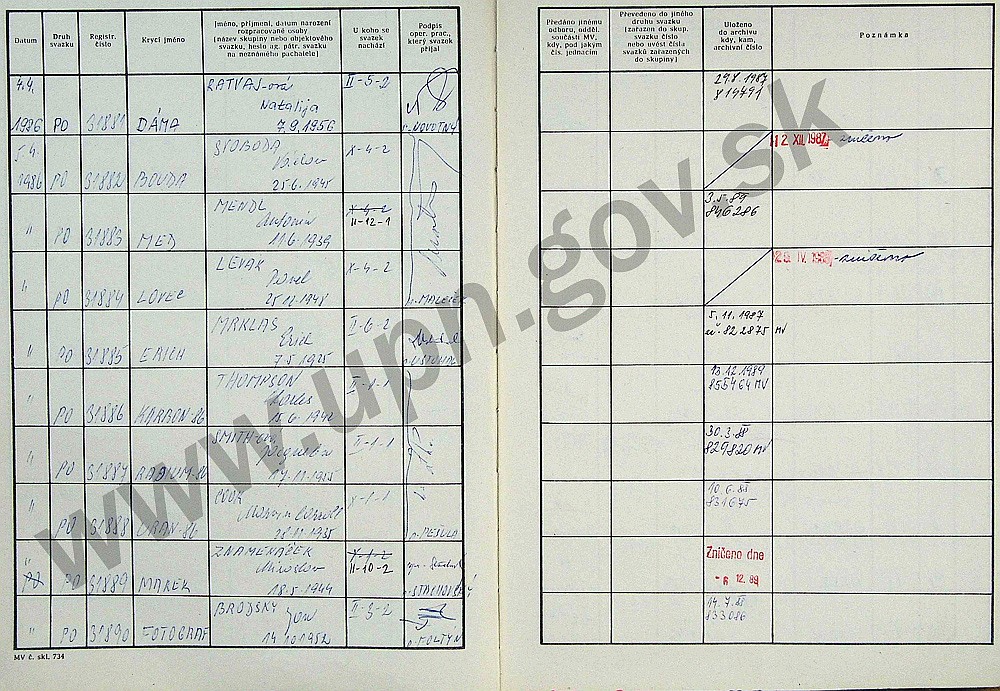 Datum
Druh svazku
Registr. číslo
Krycí jméno
Jméno, příjmení, datum narození rozpracované osoby (název skupiny nebo objektového svazku, heslo ag. pátr. svazku na neznámého pachatele)
U koho se svazek nachází
Podpis oper. prac., který svazek přijal
Předáno jinému odboru, odděl. součásti MV, kdy, pod jakým čís. jednacím
Převedeno do jiného druhu svazku (zařazen do skup. svazku číslo nebo uvést čísla svazků zařazených do skupiny)
Uloženo do archivu kdy, kam, archivní číslo
Poznámka
4.4. RATVAJ-ová II-5-2 29.8.1987
Natalija 819791
1986 PO 31881 DÁMA 7.9.1956 NOVOTNÝ
5.4. SVOBODA X-4-2 12. XII. 1987 zničeno
Václav
1986 PO 31882 BOUDA 25.6.1945
MENDL X-4-2 3.5.89
Antonín II-12-1 846286
" PO 31883 MED 11.6.1939
LEVAK X-4-2 IV. zničeno
Pavel
" PO 31884 LOVEC 25.11.1948
MRKLAS II-6-2 5.11.1987
Erich č. 822875 MV
" PO 31885 ERICH 7.5.1925
THOMPSON II-1-1 13.12.1989
855464 MV
PO 31886 KARBON-86 15.6.1942
SMITH-ová II-1-1 30.3.88
" 829820 MV
PO 31887 RADIUM-86
COOK X-1-1 10.6.88
" 831675
PO 31888 URAN-86 28.11.1935 PEŠULA
" ZNAMENÁČEK X-1-2 Zničeno dne
Miroslav II-10-2 - 6 12. 89
PO PO 31889 MAREK 18.5.1944
BRODSKÝ II-3-2 14.7.88
Jan 833086
" PO 31890 FOTOGRAF 14.10.1952 FOLTÝN
MV č. skl. 734
www.upn.gov.sk